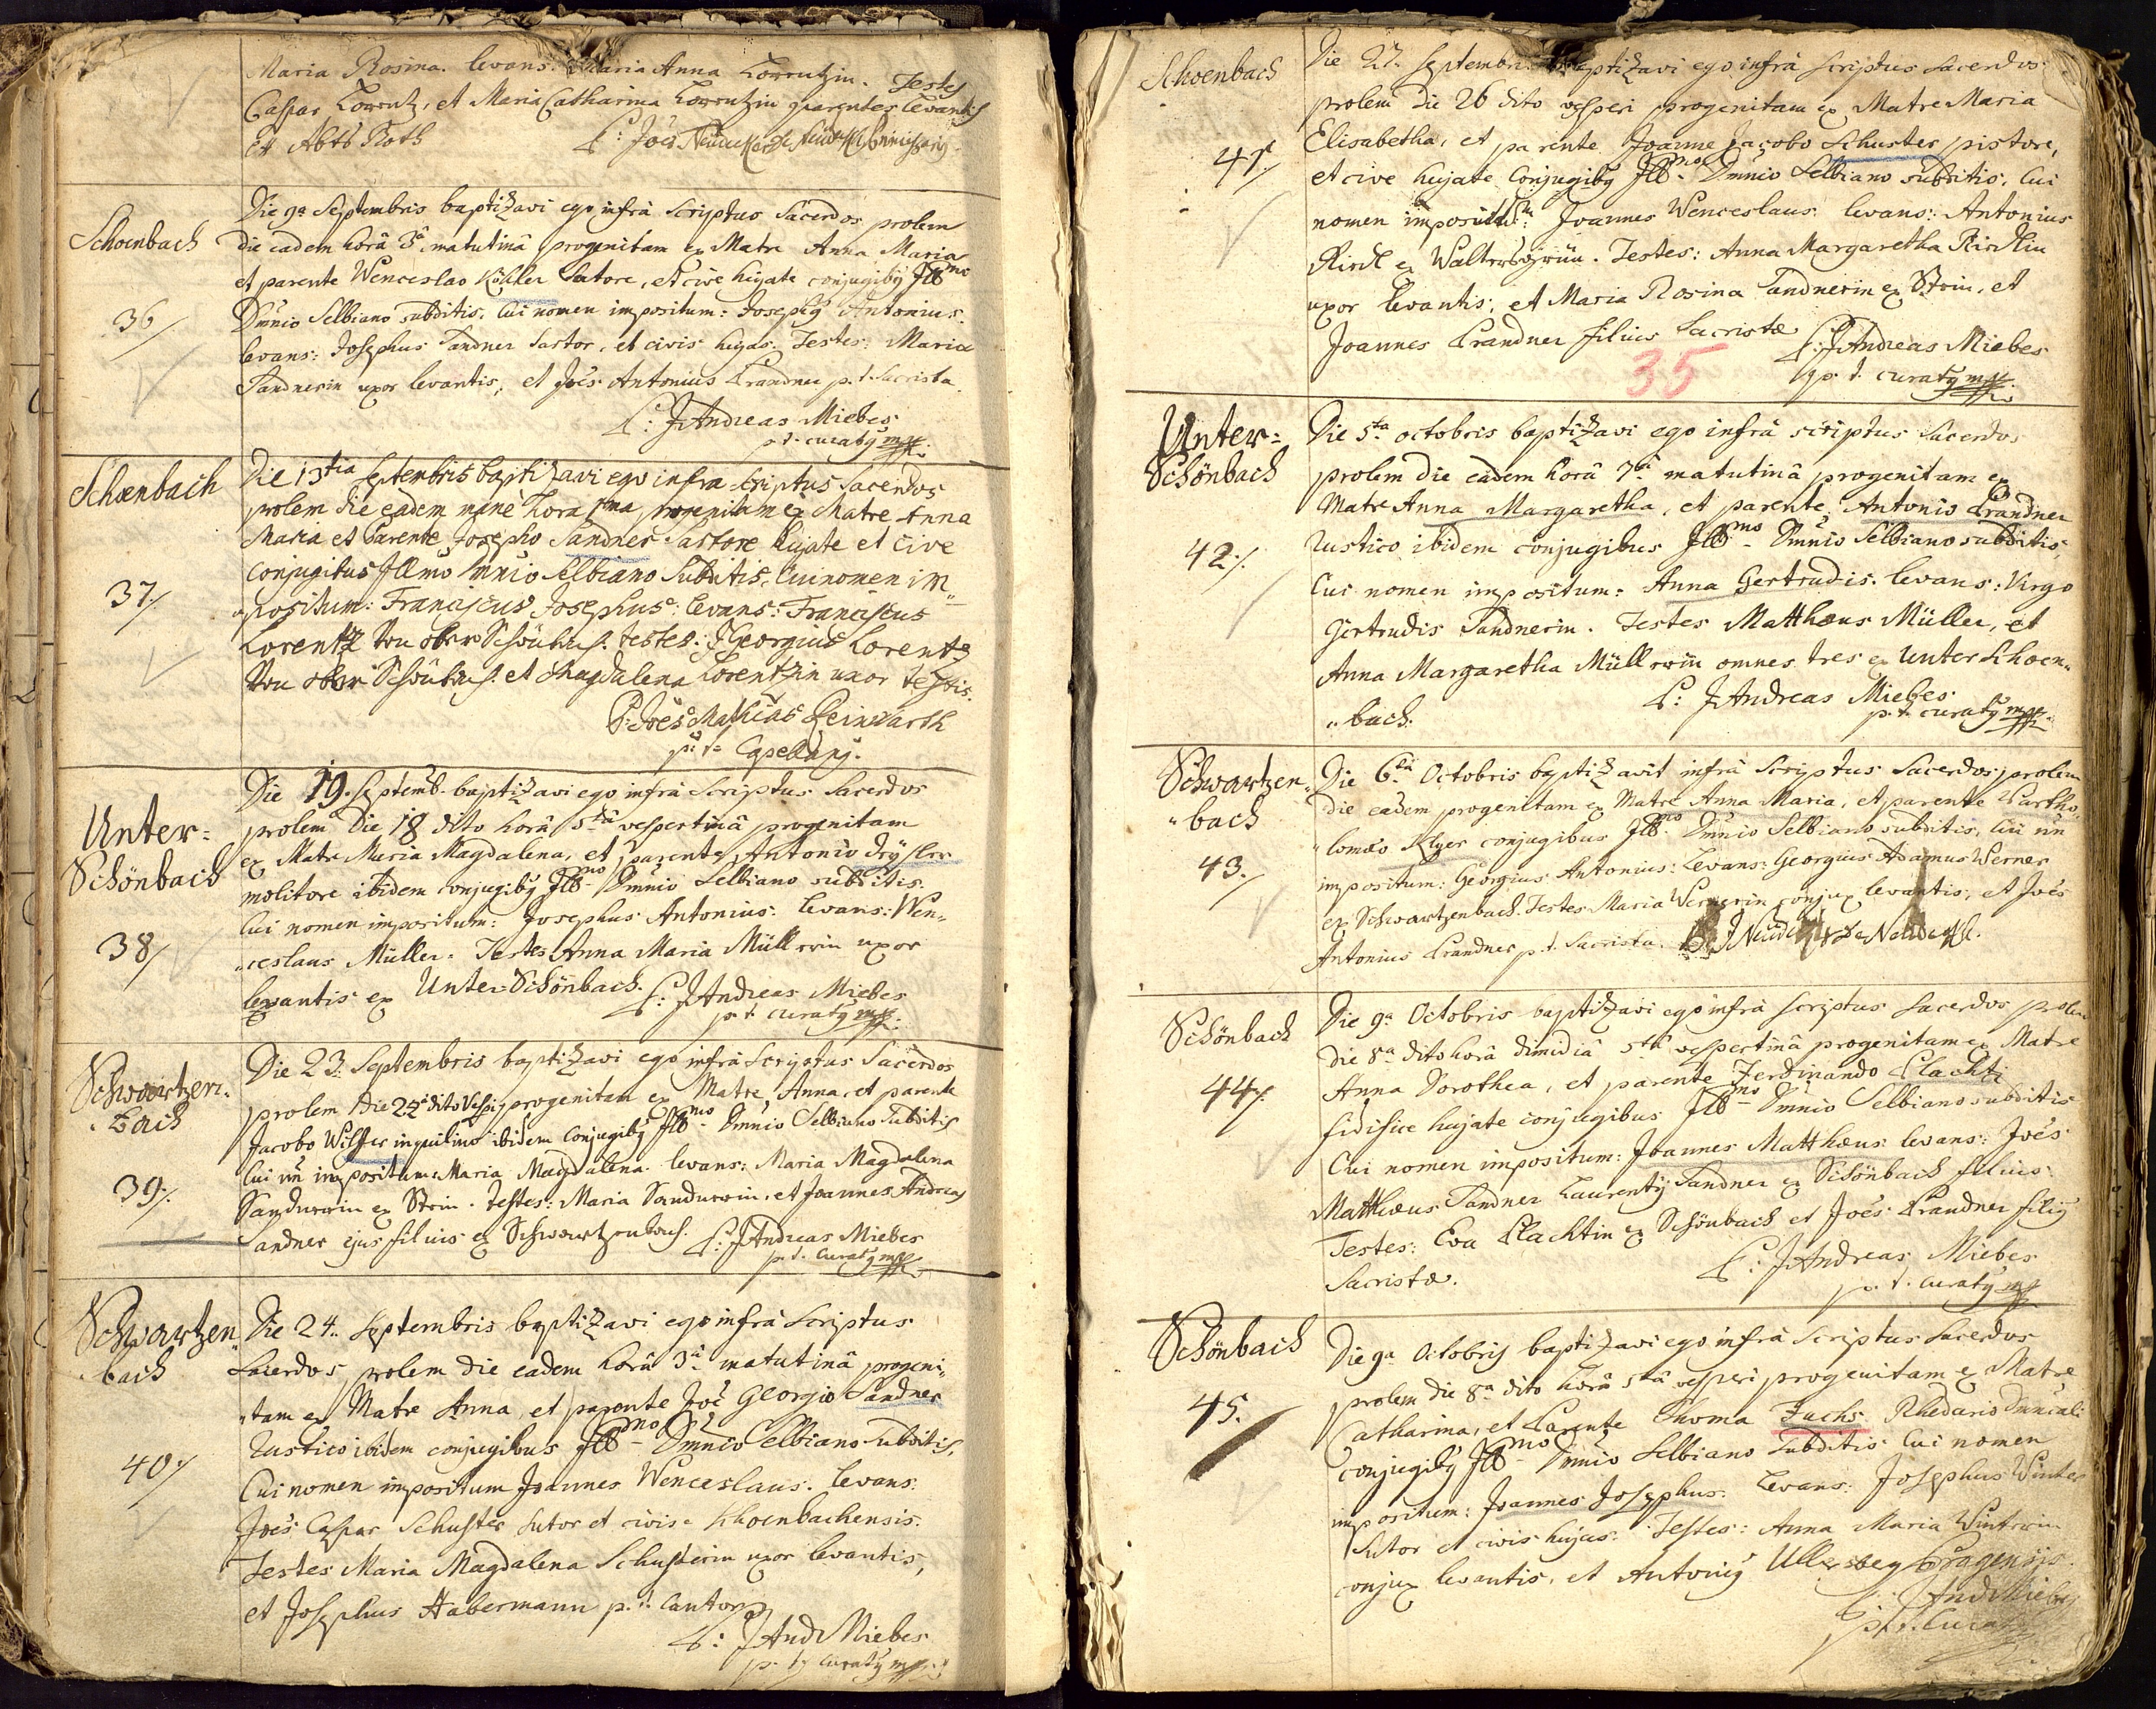 Maria Rosina. levans: Maria Anna Lorentzin. Testes
Caspar Lorentz, et Maria Catharina Lorentzin parentes levantis
et Abts Roth P: Joes
Schoenbach
36/
Die 9a Septembris baptizavi ego infrà Scriptus Sacerdos prolem
die eadem horâ 3â matutinâ progenitam ex Matre Anna Maria
et parente Wenceslao Köhler Satore, et cive hujate conjugibỹ Illmo
Dmnio Selbiano subditis. Cui nomen impositum: Josephỹ Antonius.
levans: Josephus Sandner Sartor, et civis hujas. Testes: Maria
Sandnerin uxor levantis, et Joës Antonius Prandner p.t. Sacrista.
P: JAndreas Miebes
p.t. curatỹ mpp.
Schoenbach
37./
Die 13tia Septembris baptizavi ego infra scriptus Sacerdos
prolem die eadem manè hora 1ma progenitam ex Matre Anna
Maria et Parente Josepho Sandner Sartore hujate et cive
conjugibus Illmo Dmnio Selbiano Subditis, Cui nomen im"
"positum: Franciscus Josephus: levans: Franciscus
Lorentz von ober Schönbach. testes: JGeorgius Lorentz
von ober Schönbach. et Magdalena Lorentzin uxor testis.
P: Joës Mathias Reinwarth
p: t: Capellanỹ.
Unter=
Schönbach
38/
Die 19. Septemb. baptizavi ego infrà Scriptus Sacerdos
prolem Die 18 dito horâ 5tâ vespertinâ progenitam
ex Matre Maria Magdalena, et parente Antonio
molitore ibidem conjugibỹ Illmo Dmnio Selbiano subditis.
Cui nomen impositum: Josephus Antonius. levans: Wen"
"ceslaus Müller. Testes Anna Maria Müllerin uxor
levantis ex Unter-Schönbach. P: JAndreas Miebes
p.t. curatỹ mpp.
Schwartzen"
"bach
39./
Die 23. Septembris baptizavi ego infrà Scriptus Sacerdos
prolem die dito vesp: progenitam ex Matre Anna, et parente
Jacobo Wilfer inquilino ibidem Conjugibỹ Illmo Dmnio Selbiano Subditis
Cui nn impositum Maria Magdalena. levans: Maria Magdalena
Sandnerin ex Stein. testes: Maria Sandnerin, et Joannes Andreas
Sandner ejus filius ex Schwartzenbach. P: JAndreas Miebes
p.t. Curatỹ mpp.
Schwartzen"
"bach
40./
Die 24. Septembris baptizavi ego infrà Scriptus
Sacerdos, prolem die eadem horâ 3â matutinâ progeni"
"tam ex Matre Anna, et parente Joë Georgio Sandner
Rustico ibidem conjugibus Illmo Dmnio Selbiano Subditis,
Cui nomen impositum Joannes Wenceslaus. levans:
Joës Caspar Schuster Sutor et civis Schoenbachensis
Testes Maria Magdalena Schusterin uxor levantis,
et Josephus Habermann p.t. Cantor
P: JAndMiebes
p.t. Curatỹ mpp.
Schoenbach
41/
Die 27. Septembris baptizavi ego infrà scriptus sacerdos
prolem die 26 dito vesperi progenitam ex Matre Maria
Elisabetha, et parente Joanne Jacobo Schuster pistore,
et cive hujate Conjugibỹ Illmo Dmnio Selbiano subditis, Cui
nomen impositum: Joannes Wenceslaus. levans: Antonius
Riedl ex Waltersgrün. Testes: Anna Margaretha Riedlin
uxor levantis, et Maria Rosina Sandnerin ex Stein, et
Joannes Prandner filius Sacristæ
35
P: JAndreas Miebes
p.t. curatỹ mpp.
Unter=
Schönbach
42./
Die 5ta octobris baptizavi ego infrà scriptus Sacerdos
prolem die eadem horâ 7â matutinâ progenitam ex
Matre Anna Margaretha, et parente, Antonio Prandner
Rustico ibidem conjugibus Illmo Dmnio Selbiano subditis,
Cui nomen impositum: Anna Gertrudis. levans: Virgo
Gertrudis Sandnerin. Testes Matthæus Müller, et
Anna Margaretha Müllerin omnes tres ex Unter Schoen"
"bach. P: JAndreas Miebes
p.t. curatỹ mpp.
Schwartzen"
"bach
43./
Die 6ta Octobris baptizavit infrà Scriptus Sacerdos prolem
die eadem progenitam ex Matre Anna Maria, et parente Bartho"
"lomæo conjugibus Illmo Dmnio Selbiano subditis, Cui nn
impositum: Georgius Antonius: Levans: Georgius Adamus Werner
ex Schwartzenbach. Testes Maria Wernerin conjux levantis, et Joës
Antonius Prandner p.t. Sacrista.
Schönbach
44/.
Die 9a Octobris baptizavi ego infrà scriptus Sacerdos prolem
die 8a dito horâ dimidiâ 5tâ vespertinâ progenitam ex Matre
Anna Dorothea, et parente Ferdinando Plachti
fidifice hujate conjugibus Illmo Dmnio Selbiano subditis
Cui nomen impositum: Joannes Matthæus levans: Joës
Matthæus Sandner Laurentỹ Sandner ex Schönbach filius
Testes: Eva Plachtin ex Schönbach et Joës Prandner filiỹ
Sacristæ. P: JAndreas Miebes
p.t. curatỹ mpp
Schönbach
45.
Die 9a Octobris baptizavi ego infrà scriptus Sacerdos
prolem die 8a dito horâ 5tâ vesperi progenitam ex Matre
Catharina, et Parente Thoma Fuchs Rhedario Dminicali
conjugibỹ Illmo Dmnio Selbiano Subditis Cui nomen
impositum: Joannes Josephus. Levans: Josephus Winter
Sutor et civis hujas. Testes: Anna Maria Winterin
conjux levantis, et Antoniỹ Pragensis.
P: JAndMiebes
p.t. Curatỹ